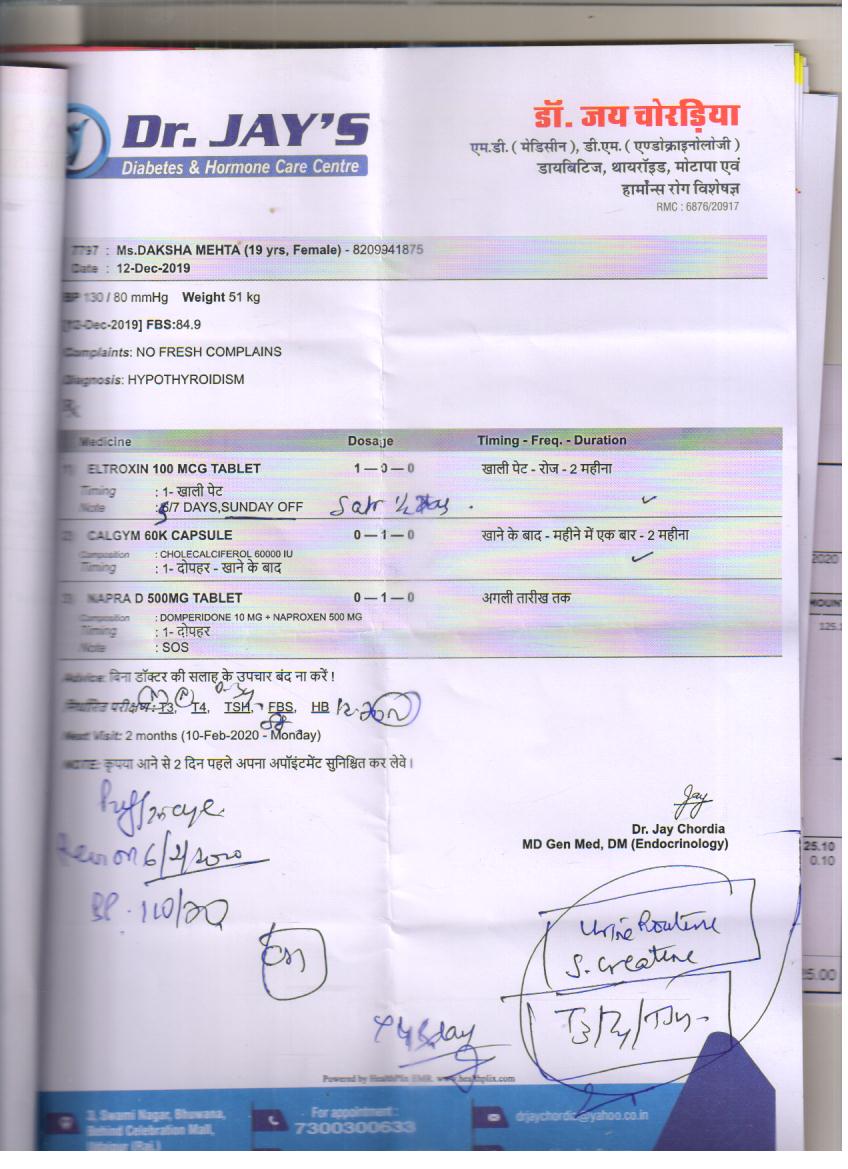 Dr. JAY'S
Diabetes & Hormone Care Centre
डॉ. जय चोरड़िया
एम.डी. ( मेडिसीन ), डी.एम. ( एण्डोक्राइनोलोजी )
डायबिटिज, थायरॉइड, मोटापा एवं
हार्मोन्स रोग विशेषज्ञ
RMC : 6876/20917
7797 : Ms.DAKSHA MEHTA (19 yrs, Female) - 8209941875
Date : 12-Dec-2019
BP 130 / 80 mmHg Weight 51 kg
-Dec-2019] FBS:84.9
Complaints: NO FRESH COMPLAINS
Diagnosis: HYPOTHYROIDISM
Rx
Medicine Dosage Timing - Freq. - Duration
1) ELTROXIN 100 MCG TABLET 1 – 0 – 0 खाली पेट - रोज - 2 महीना
Timing : 1- खाली पेट
Note : /7 DAYS,SUNDAY OFF 1/2
2) CALGYM 60K CAPSULE 0 – 1 – 0 खाने के बाद - महीने में एक बार - 2 महीना
Composition : CHOLECALCIFEROL 60000 IU
Timing : 1- दोपहर - खाने के बाद
3) NAPRA D 500MG TABLET 0 – 1 – 0 अगली तारीख तक
Composition : DOMPERIDONE 10 MG + NAPROXEN 500 MG
Timing : 1- दोपहर
Note : SOS
Advice: बिना डॉक्टर की सलाह के उपचार बंद ना करें !
निर्धारित परीक्षण: T3, T4, TSH, FBS, HB
Next Visit: 2 months (10-Feb-2020 - Monday)
NOTE: कृपया आने से 2 दिन पहले अपना अपॉइंटमेंट सुनिश्चित कर लेवे।
on 6/2/2020
BP. 110/70
Jay
Dr. Jay Chordia
MD Gen Med, DM (Endocrinology)
Urine Routine
S. Creatine
T3/T4/TSH
Powered by HealthPlix EMR. www.healthplix.com
3, Swami Nagar, Bhuwana,
Behind Celebration Mall,
Udaipur (Raj.)
For appointment :
7300300633
drjaychordia@yahoo.co.in
2020
125.1
25.10
0.10
5.00